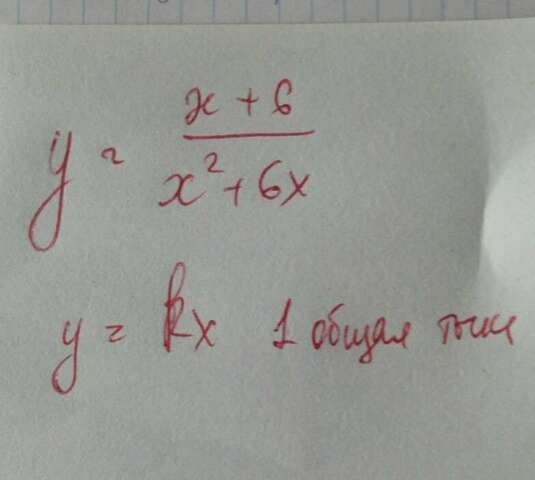 y = x + 6 / x² + 6x
y = kx 1 общая точка